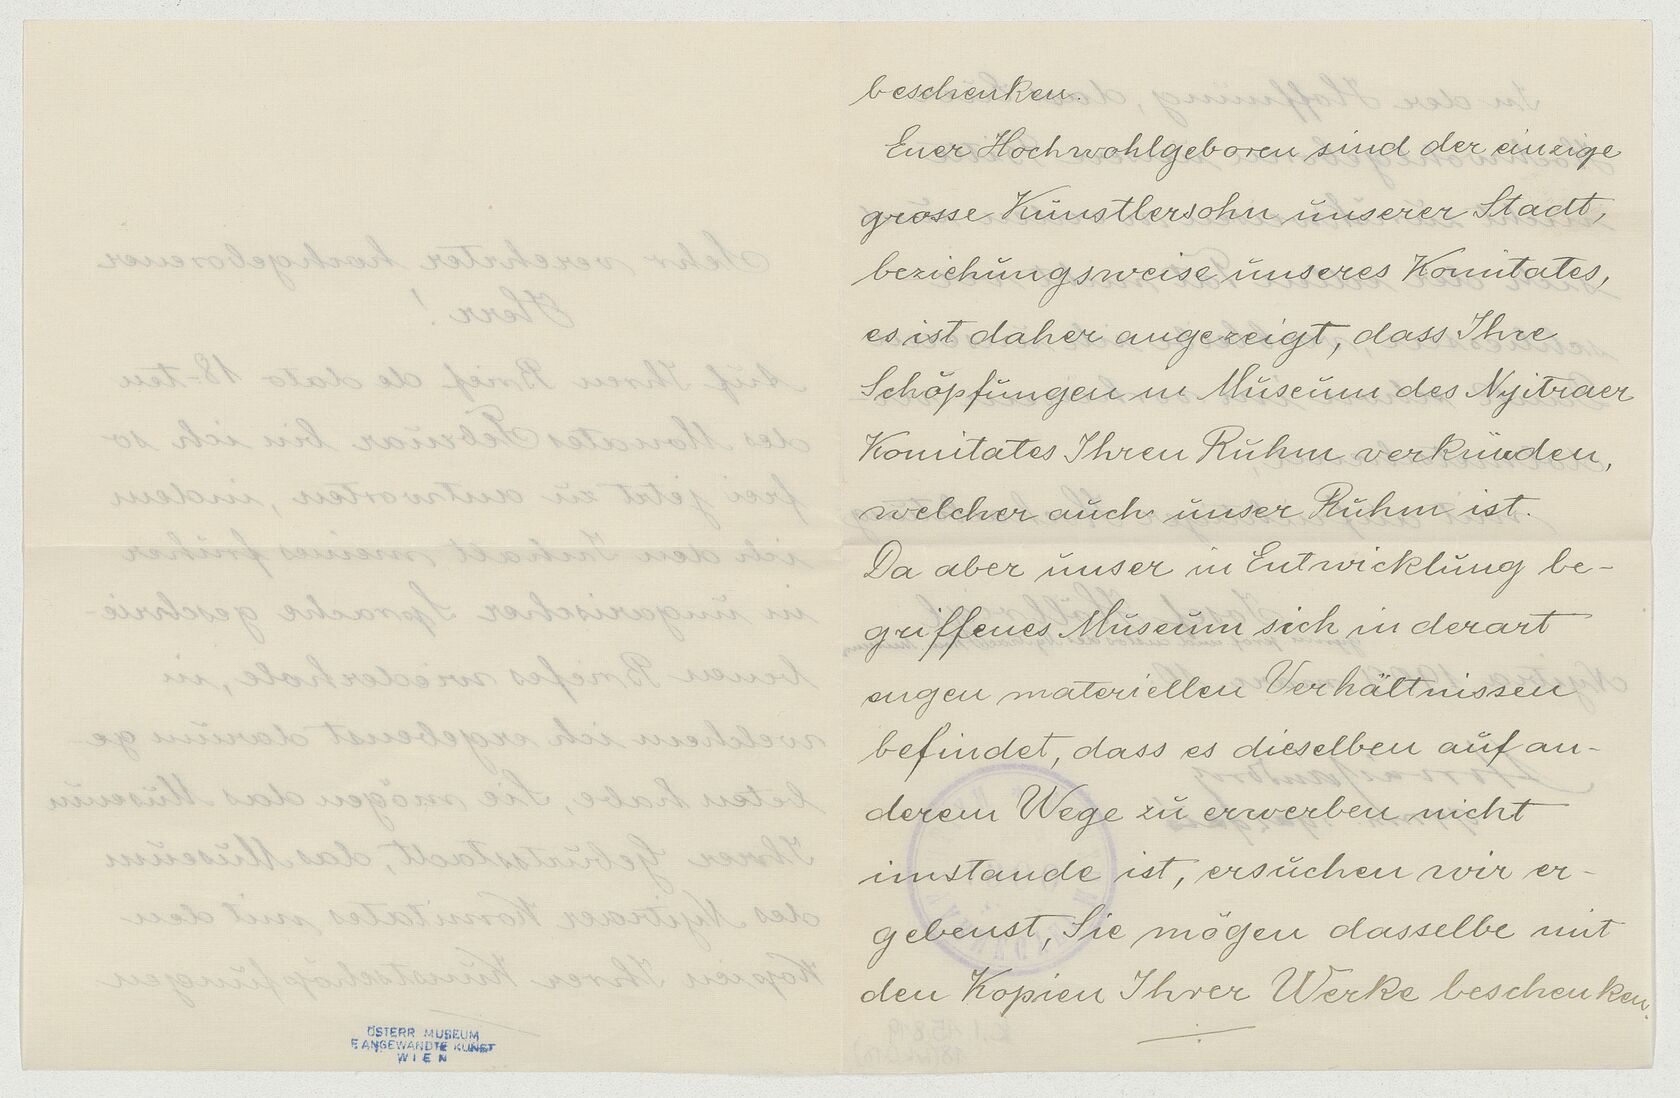 beschenken.
Euer Hochwohlgeboren sind der einzige
grosse Künstlersohn unserer Stadt,
beziehungsweise unseres Komitates,
es ist daher angezeigt, dass Ihre
Schöpfungen in Museum des Nyitraer
Komitates Ihren Ruhm verkünden,
welcher auch unser Ruhm ist.
Da aber unser in Entwicklung be-
griffenes Museum sich in derart
engen materiellen Verhältnissen
befindet, dass es dieselben auf an-
derem Wege zu erwerben nicht
imstande ist, ersuchen wir er-
gebenst, Sie mögen dasselbe mit
den Kopien Ihrer Werke beschenken.
ÖSTERR MUSEUM
F. ANGEWANDTE KUNST
WIEN